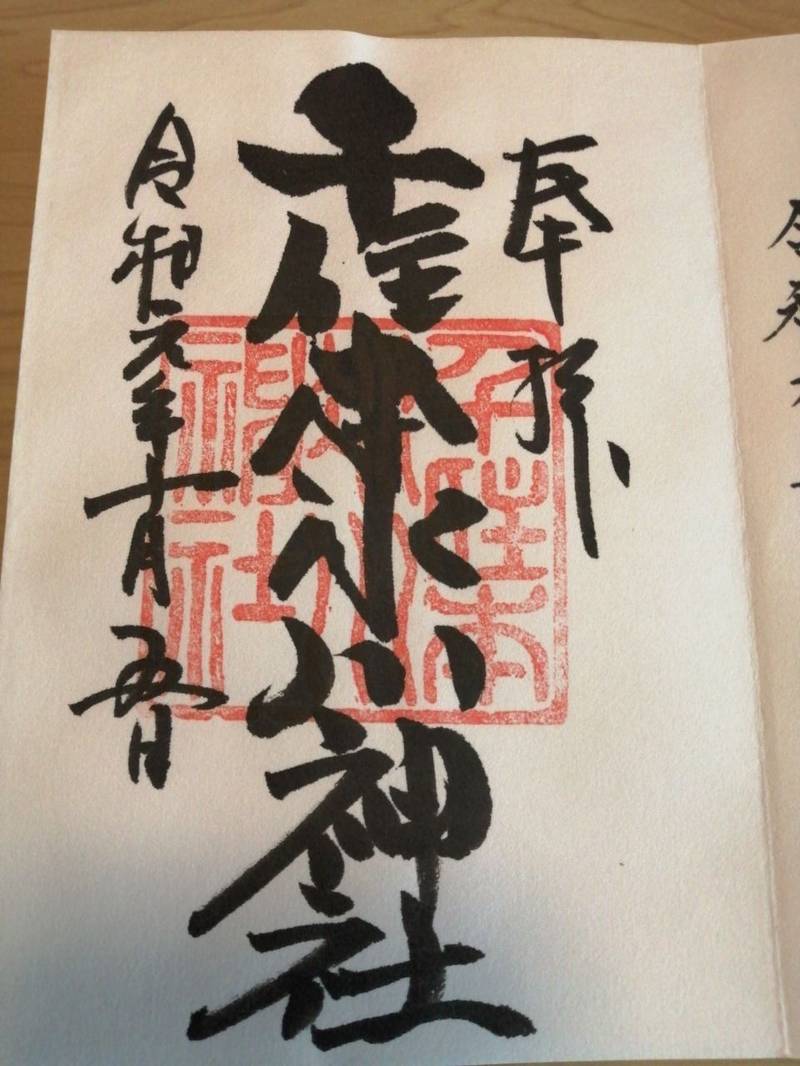 奉拝
千住本氷川神社
千住本
氷川
神社
令和元年十月五日